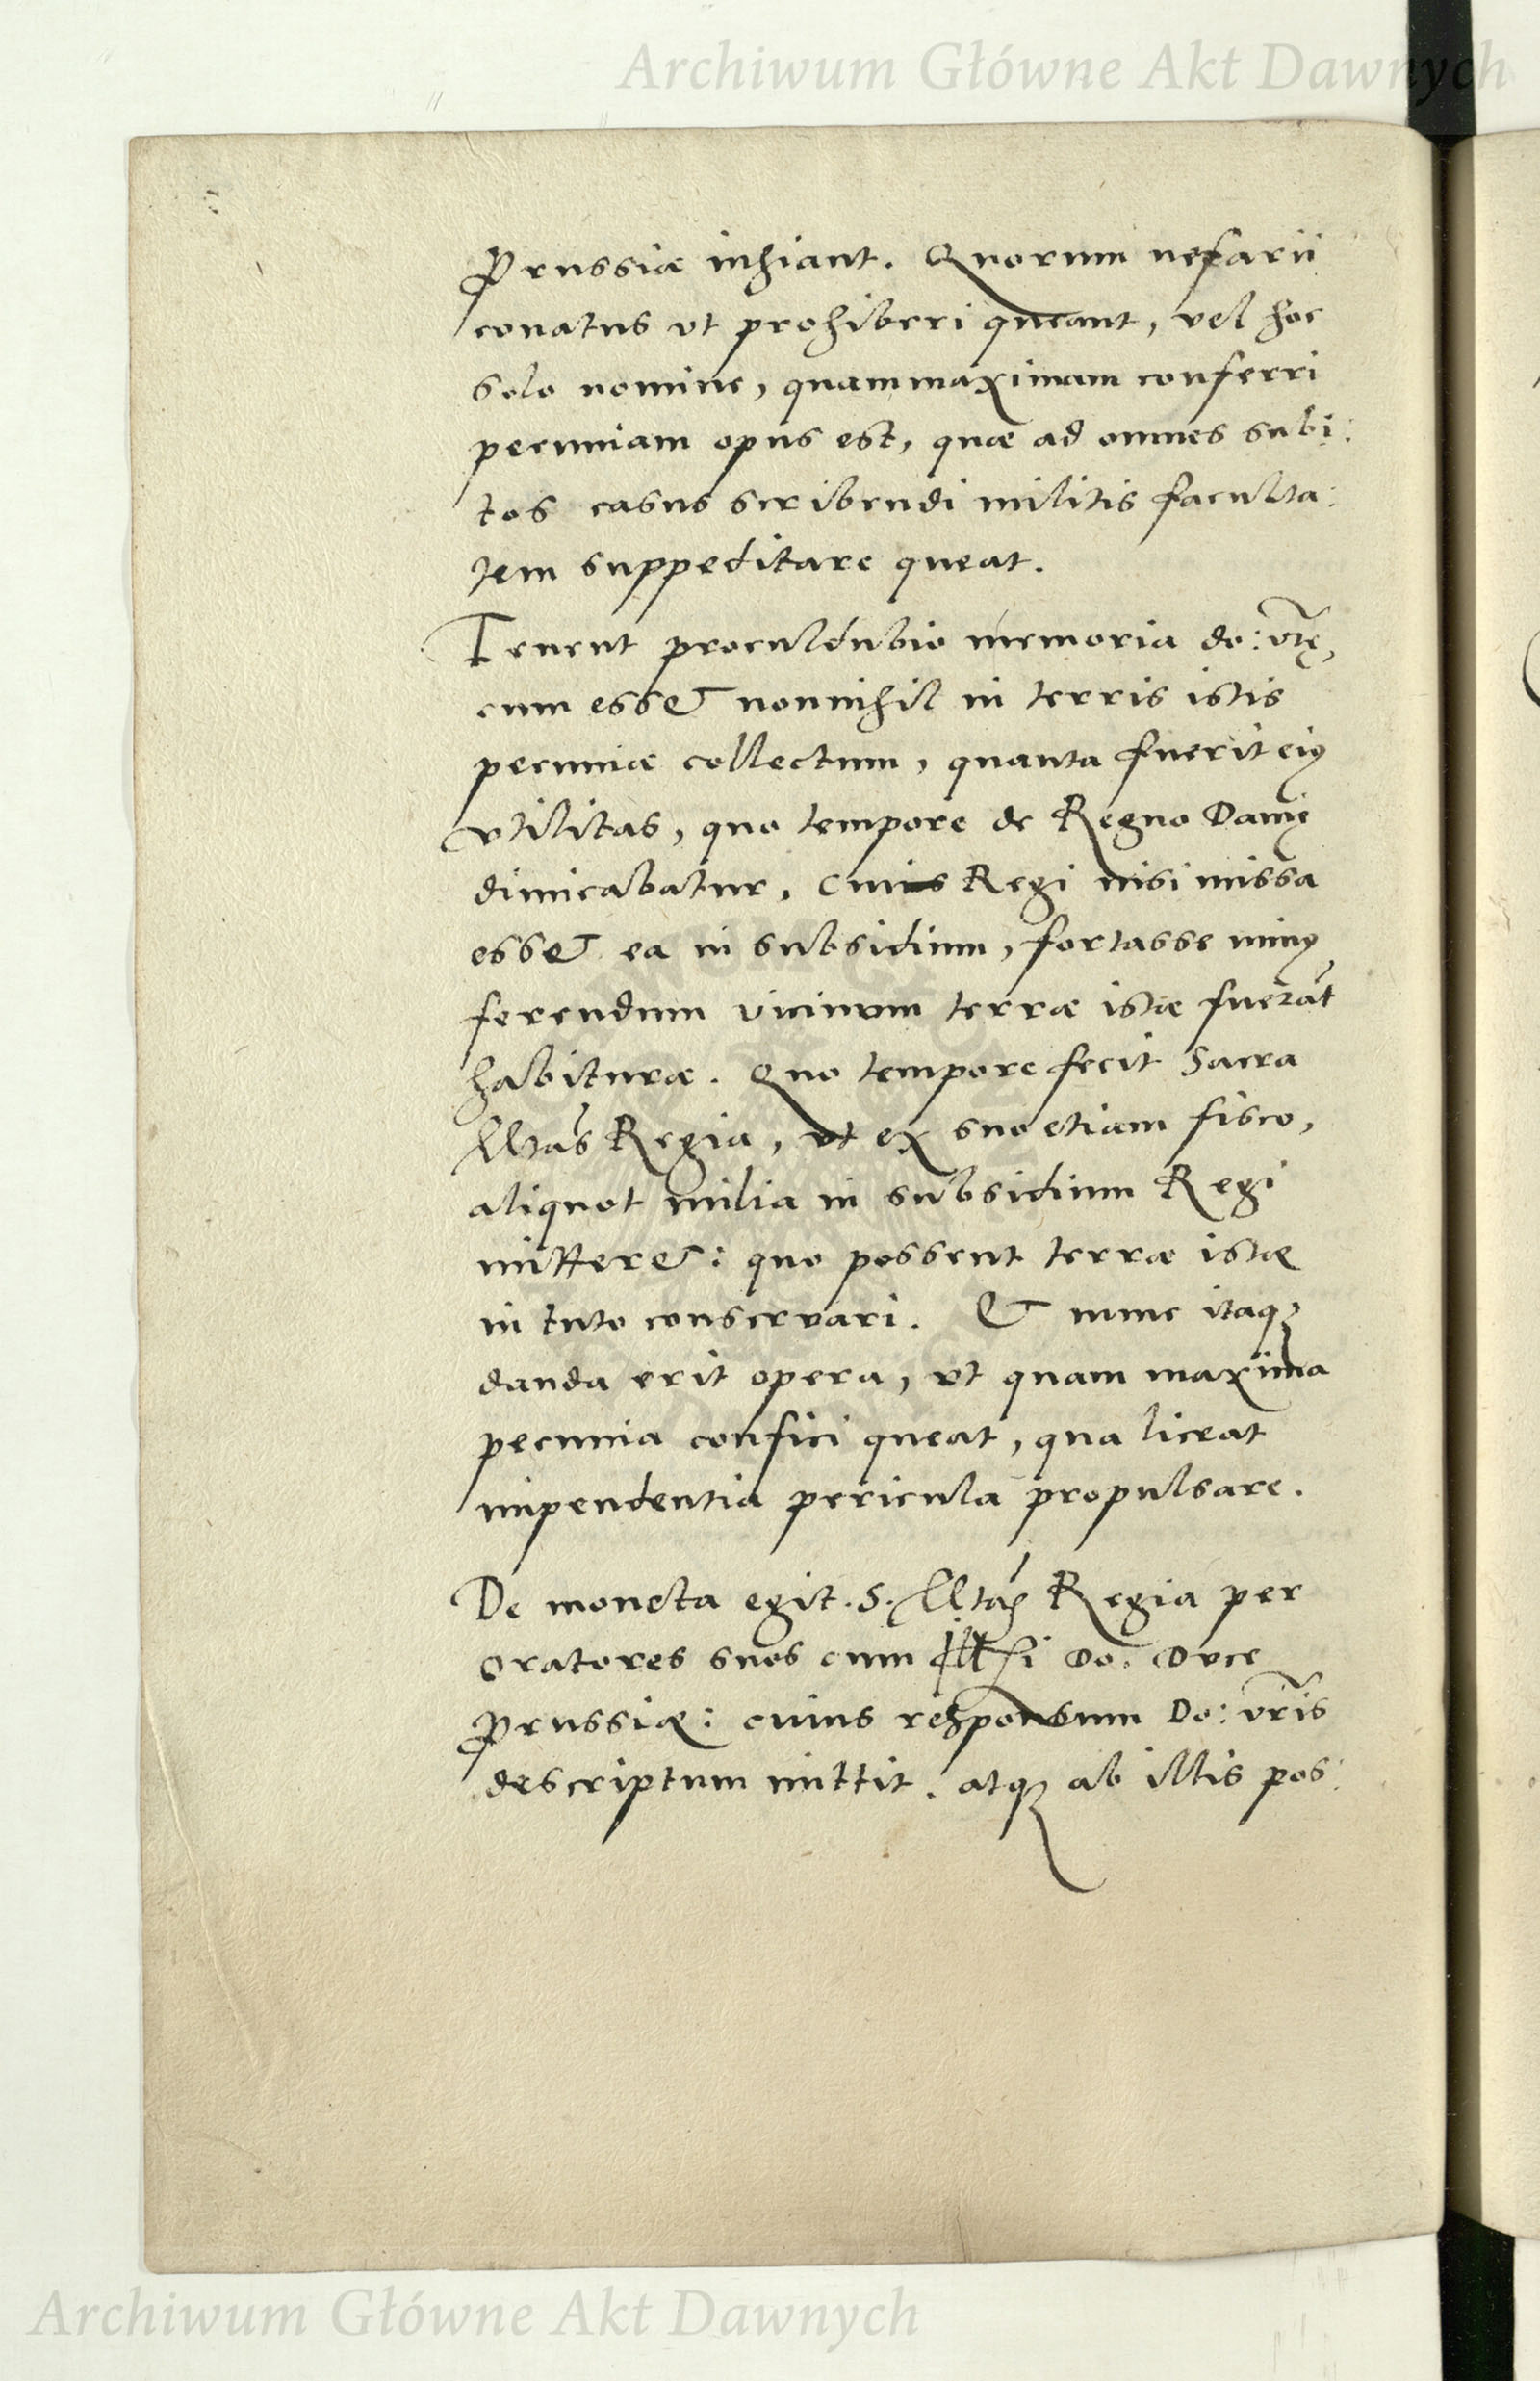 Archiwum Główne Akt Dawnych
Prussiæ inhiant. Quorum nefarii
conatus ut prohiberi queant, vel hoc
solo nomine, quam maximam conferri
pecuniam opus est, quæ ad omnes subi:
tos casus scribendi militis faculta:
tem suppeditare queat.
Tenent proculdubio memoria do: vrę,
cum esset nonnihil in terris istis
pecuniæ collectum, quanta fuerit eiꝰ
utilitas, quo tempore de Regno Danię
dimicabatur. Cuius Regi nisi missa
esset ea in subsidium, fortasse minꝰ
ferendum vicinum terræ istæ fuerãt
habituræ. Quo tempore fecit Sacra
Mtas Regia, ut ex suo etiam fisco,
aliquot milia in subsidium Regi
mitteret: quo possent terræ istæ
in tuto conservari. Et nunc itaqꝫ
danda erit opera, ut quam maxima
pecunia confici queat, qua liceat
impendentia pericula propulsare.
De moneta egit .S. Mtas Regia per
Oratores suos cum Do. Duce
Prussiæ: cuius responsum Do: vris
descriptum mittit. atqꝫ ab illis pos:
Archiwum Główne Akt Dawnych